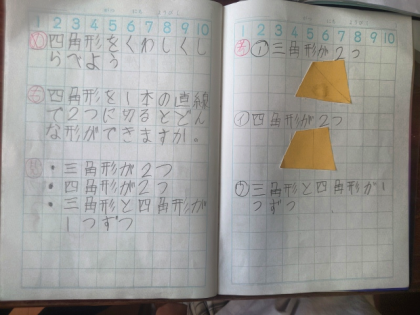 1 2 3 4 5 6 7 8 9 10
め 四角形をくわしくし
らべよう
四角形を1本の直線
で2つに切るとどん
な形ができますか。
・三角形が2つ
・四角形が2つ
・三角形と四角形が
1つずつ
1 2 3 4 5 6 7 8 9 10
考 ア 三角形が2つ
イ 四角形が2つ
ウ 三角形と四角形が1
つずつ